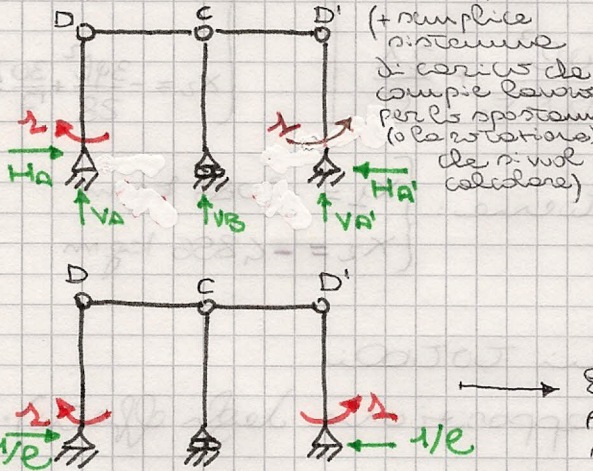 D C D' (+ semplice
sistema
di carico che
compie lavoro
per lo spostam
(o la rotazione)
che si vuol
calcolare)
1 1
HA HA'
VA VB VA'
D C D'
1 1
1/l 1/l